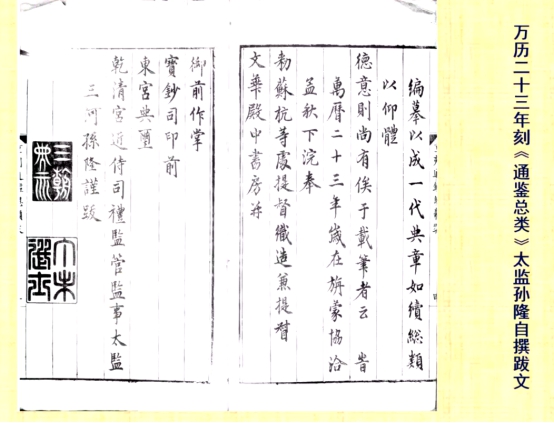 万历二十三年刻《通鉴总类》太监孙隆自撰跋文
編摹以成一代典章如續總類
以仰體
德意則尚有俟于載筆者云 旹
萬曆二十三年歲在旃蒙協洽
孟秋下浣奉
勑蘇杭等處提督織造兼提督
文華殿中書房
御前作掌
寶鈔司印前
東宮典璽
乾清宮近侍司禮監管監事太監
三河孫隆謹跋